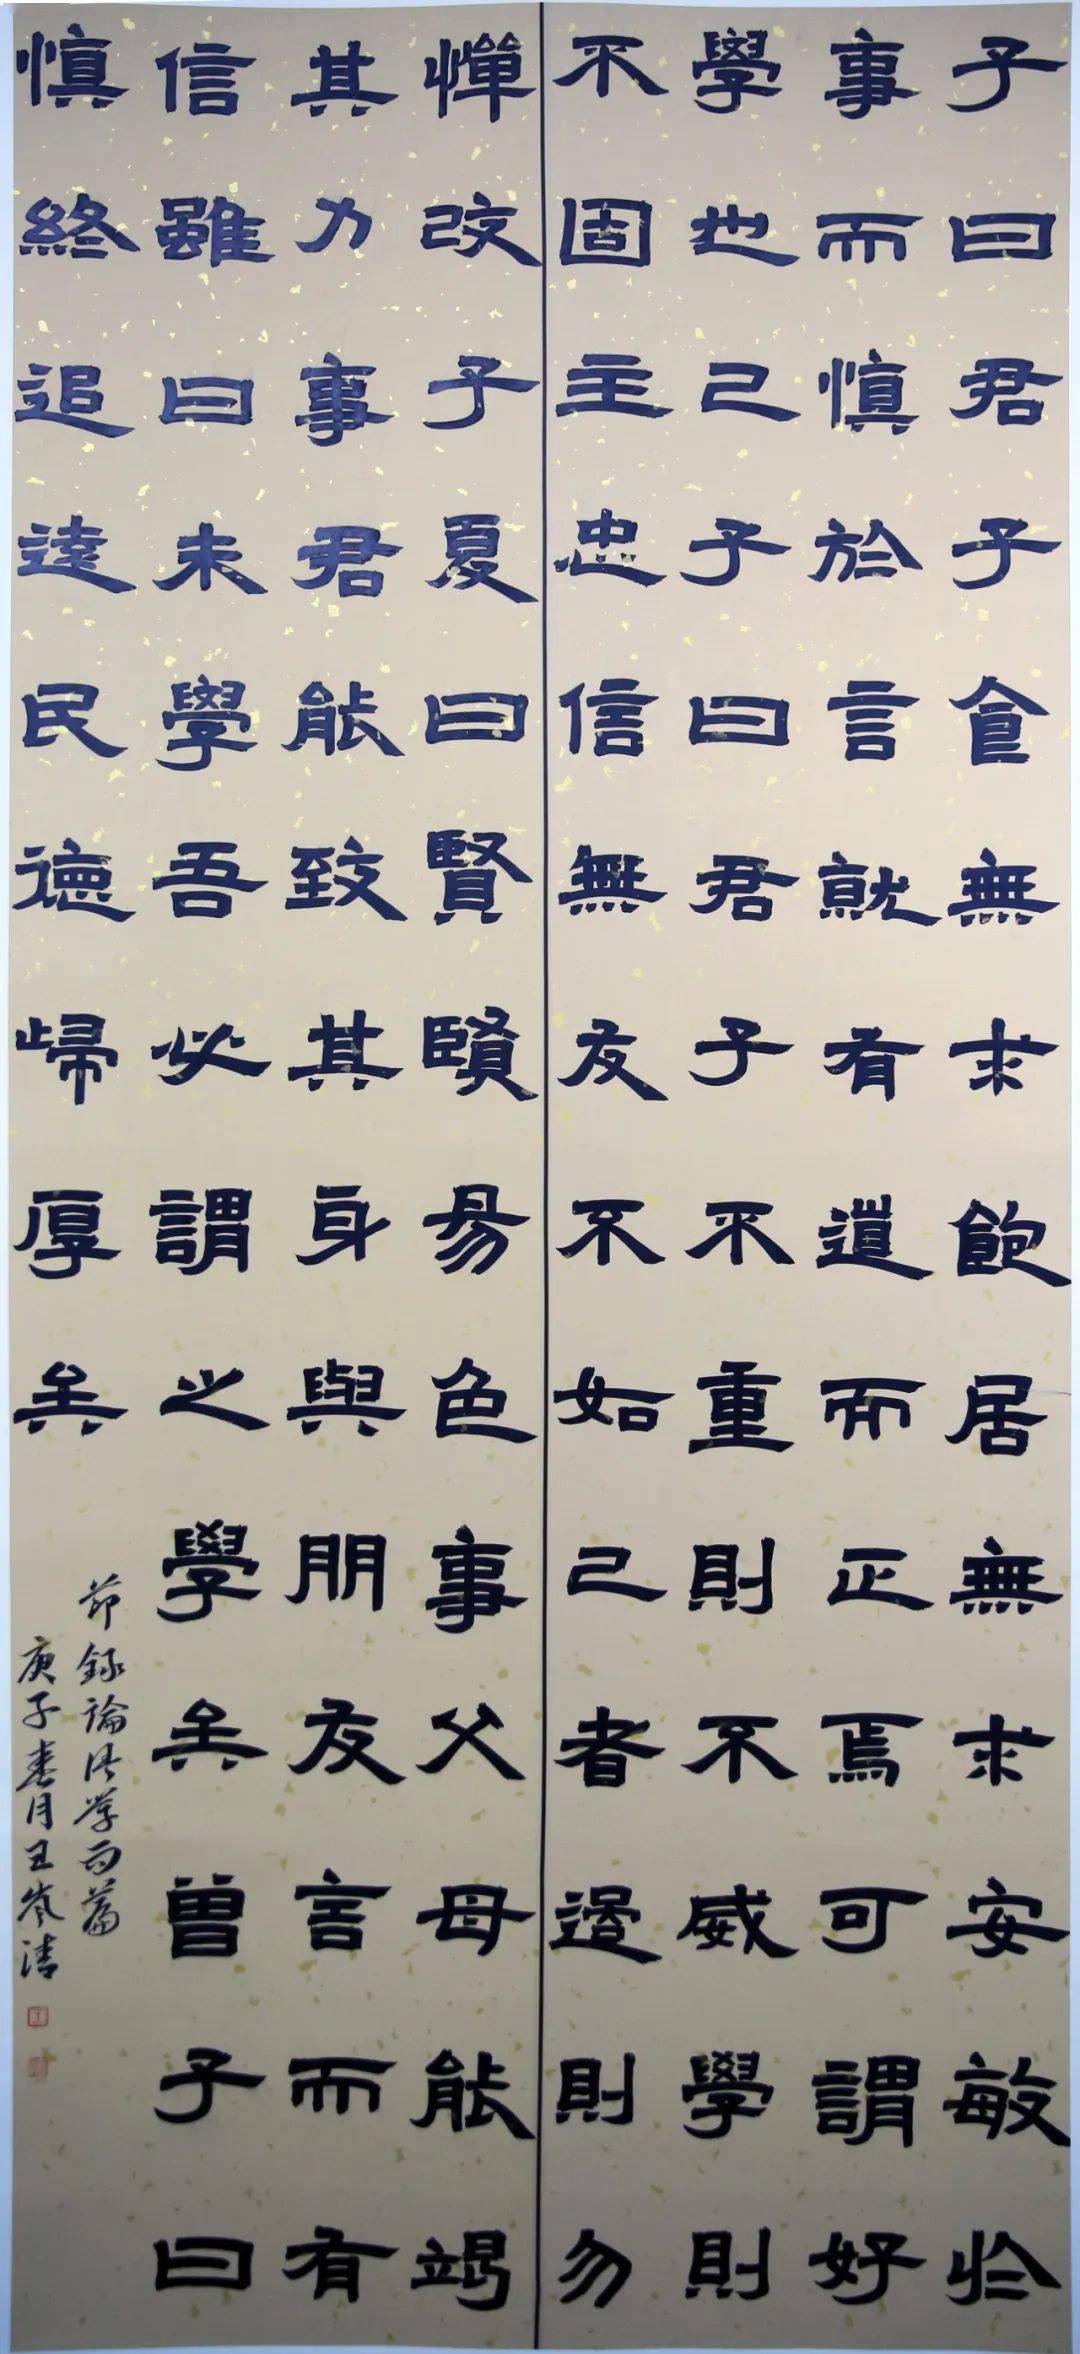 子曰君子食無求飽居無求安敏於
事而慎於言就有道而正焉可謂好
學也已子曰君子不重則不威學則
不固主忠信無友不如己者過則勿
憚改子夏曰賢賢易色事父母能竭
其力事君能致其身與朋友言而有
信雖曰未學吾必謂之學矣曾子曰
慎終追遠民德歸厚矣
節錄論語學而篇
庚子春月王岚清